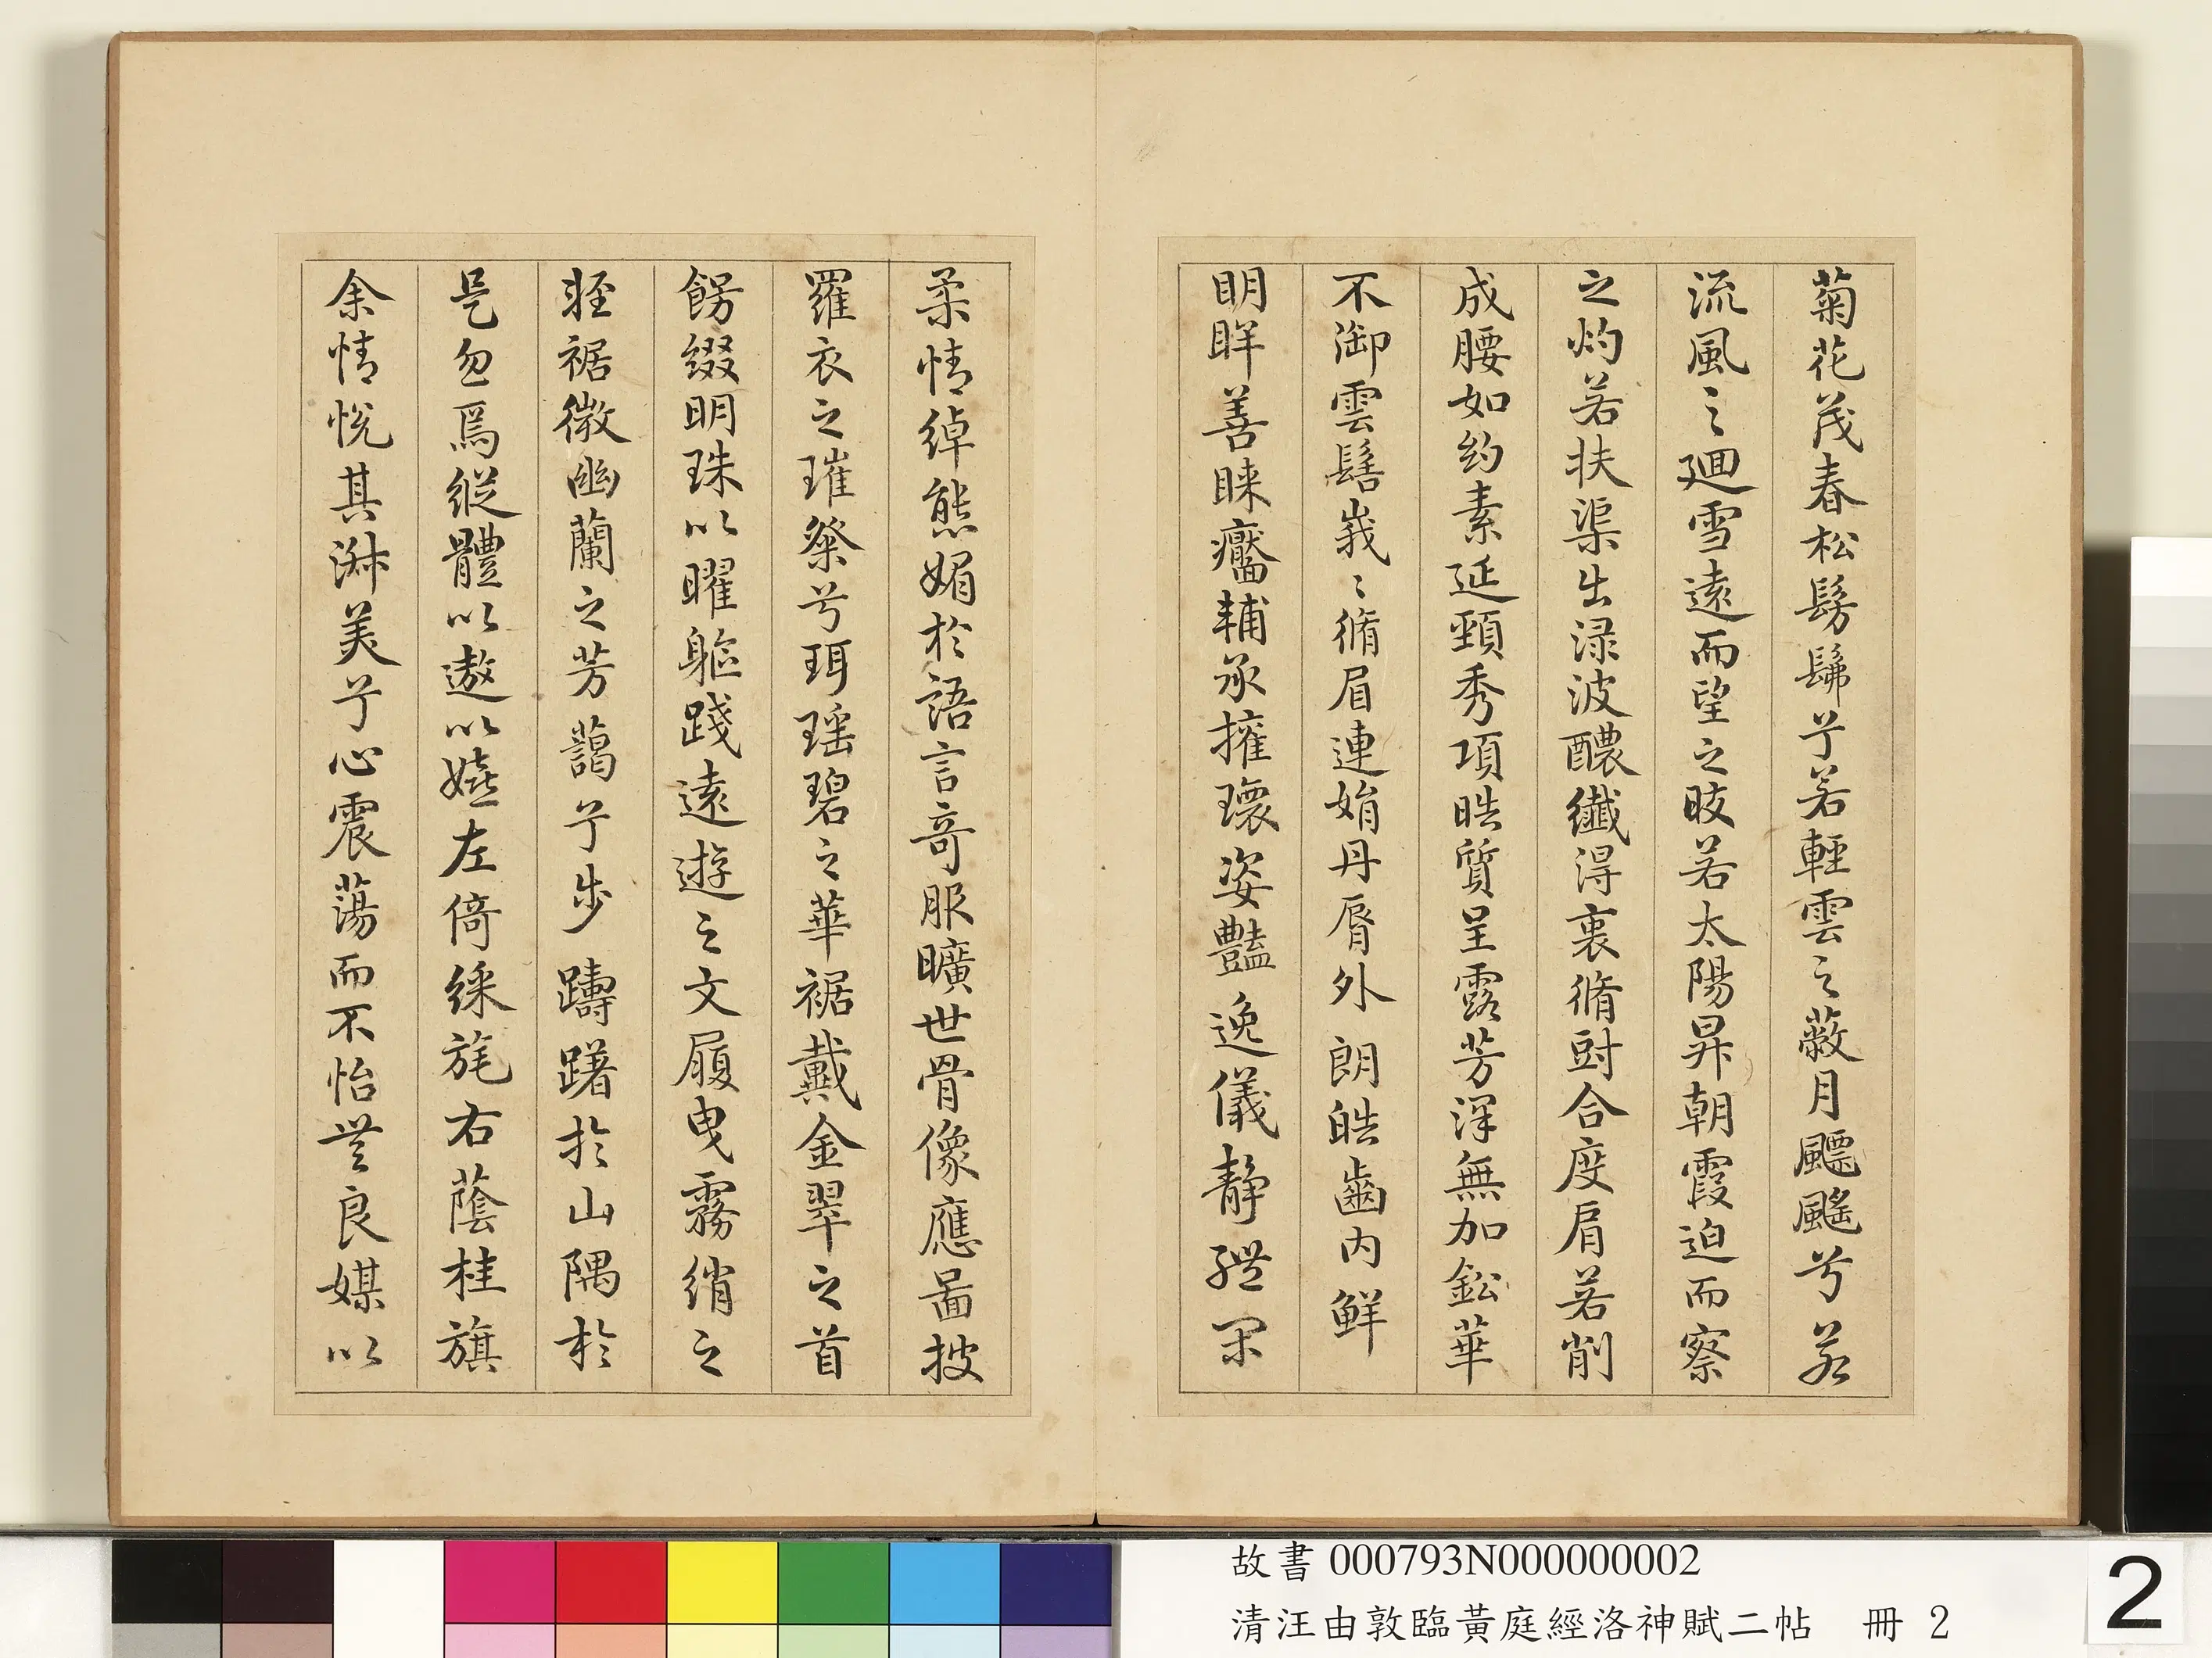 菊花茂春松髣髴兮若輕雲之蔽月飃颻兮若
流風之廻雪遠而望之晈若太陽昇朝霞迫而察
之灼若扶渠出渌波醲纖得衷脩短合度肩若削
成腰如約素延頸秀項晧質呈露芳澤無加鉛華
不御雲髻峩〻脩眉連娟丹脣外朗皓齒內鮮
明眸善睞靨輔承擁瓌姿豔逸儀靜體閑
柔情綽態媚於語言奇服曠世骨像應圖披
羅衣之璀粲兮珥瑤碧之華裾戴金翠之首
餝綴明珠以曜軀踐遠遊之文履曳霧綃之
輕裾微幽蘭之芳藹兮步躊躇於山隅於
是忽焉縱體以遨以嬉左倚綵旄右蔭桂旗
余情悅其淑美兮心震蕩而不怡無良媒以
故書 000793N000000002
清汪由敦臨黃庭經洛神賦二帖 冊 2
2